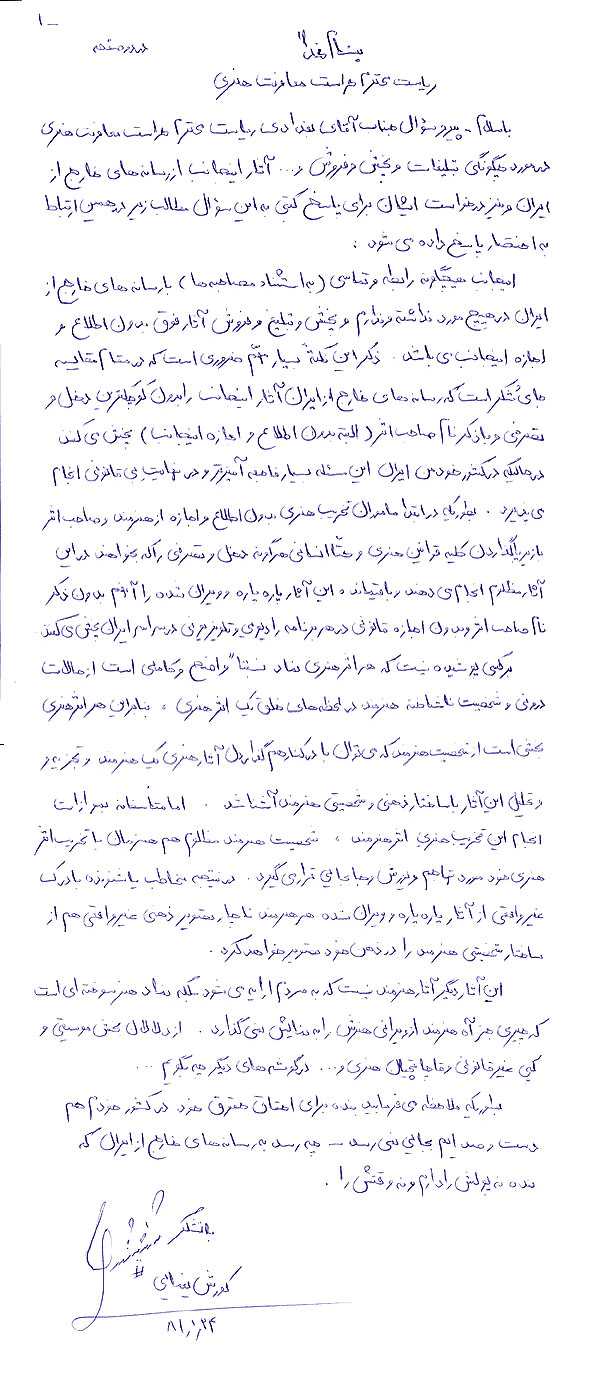 ۱_
در دو صفحه
بنام خدا
ریاست محترم حراست معاونت هنری
باسلام - پیرو سؤال جناب آقای بغدادی ریاست محترم حراست معاونت هنری
در مورد چگونگی تبلیغات و پخش و فروش و... آثار اینجانب از رسانه های خارج از
ایران و نیز درخواست ایشان برای پاسخ کتبی به این سؤال مطالب زیر در همین ارتباط
به اختصار پاسخ داده می شود :
اینجانب هیچگونه رابطه و تماسی (به استناد مصاحبه ها) با رسانه های خارج از
ایران در هیچ مورد نداشته و ندارم و پخش و تبلیغ و فروش آثار فوق بدون اطلاع و
اجازه اینجانب می باشد. ذکر این نکتهٔ بسیار مهم ضروری است که در مقام مقایسه
جای تشکر است که رسانه های خارج از ایران آثار اینجانب را بدون کوچکترین دخل و
تصرفی و با ذکر نام صاحب اثر (البته بدون اطلاع و اجازه اینجانب) پخش می کنند
در حالیکه در کشور خودمن ایران این مسئله بسیار فاجعه آمیزتر و در نهایت بی قانونی انجام
می پذیرد. بطوریکه در ابتدا تخریب هنری بدون اطلاع و اجازه از هنرمند و صاحب اثر
با زیر پا گذاردن کلیه قوانین هنری و حتّا انسانی هرگونه دخل و تصرفی را که بخواهند در این
آثار مظلوم انجام می دهند و باقیمانده این آثار پاره پاره و ویران شده را آنهم بدون ذکر
نام صاحب اثر و بدون اجازه قانونی در هر برنامه رادیویی و تلویزیونی در سراسر ایران پخش می کنند
بر کسی پوشیده نیست که هر اثر هنری نماد نسبتاً واضح و کاملی است از حالات
درونی و شخصیت ناشناخته هنرمند در لحظه های خلق یک اثر هنری ، بنابراین هر اثر هنری
بخشی است از شخصیت هنرمند که می توان با در کنار هم گذاردن آثار هنری یک هنرمند و تجزیه
و تحلیل این آثار با ساختار ذهنی و شخصیتی هنرمند آشنا شد. اما متأسفانه به موازات
انجام این تخریب هنریِ اثر هنرمند ، شخصیت هنرمند مظلوم هم همزمان با تخریب اثر
هنری خود مورد تهاجم و یورش و جابجایی قرار می گیرد. در نتیجه مخاطب یا شنونده با درک
غیر واقعی از آثار پاره پاره و ویران شده هر هنرمند ناچار تصویر ذهنی غیر واقعی هم از
ساختار شخصیتی هنرمند را در ذهن خود تصویر خواهد کرد.
این آثار دیگر آثار هنرمند نیست که به مردم ارایه می شود بلکه نماد هنر سوخته ای است
که چیزی جز آه هنرمند از ویرانی هنرش را به نمایش نمی گذارد. از دلالان پخش موسیقی و
کپی غیر قانونی و قاچاقچیان هنری و... در گوشه های دیگر چه بگویم ...
بطوریکه ملاحظه می فرمایید بنده برای احقاق حقوق خود در کشور خودم هم
دست و صدایم بجایی نمی رسد - چه رسد به رسانه های خارج از ایران که
بنده نه پولش را دارم و نه وقتش را.
با تشکر
کورش یغمایی
۸۱,۱,۲۴